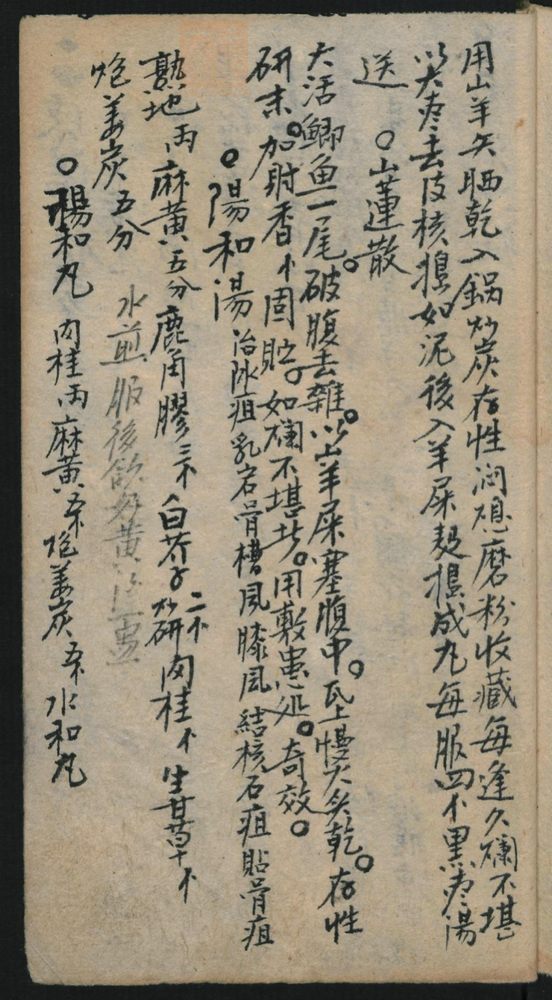 用山羊矢晒乾入鍋炒炭存性潤磨粉收藏每逢久爛不堪
以大枣去皮核搗如泥後入羊屎麵搗成丸每服四个黑枣湯
送 〇山蓮散
大活鯽魚一尾。破腹去雜。以山羊屎塞腹中。瓦上慢火炙乾。存性
研末。加射香个固貯。如爛不堪者。用敷患处。奇效。
〇陽和湯 治陰疽乳岩骨槽風膝風結核石疽貼骨疽
熟地両麻黄五分鹿角膠三个白芥子二个炒研肉桂个生甘草个
炮姜炭五分 水煎服後飲好黄酒
〇陽和丸 肉桂両麻黄五个炮姜炭五个水和丸